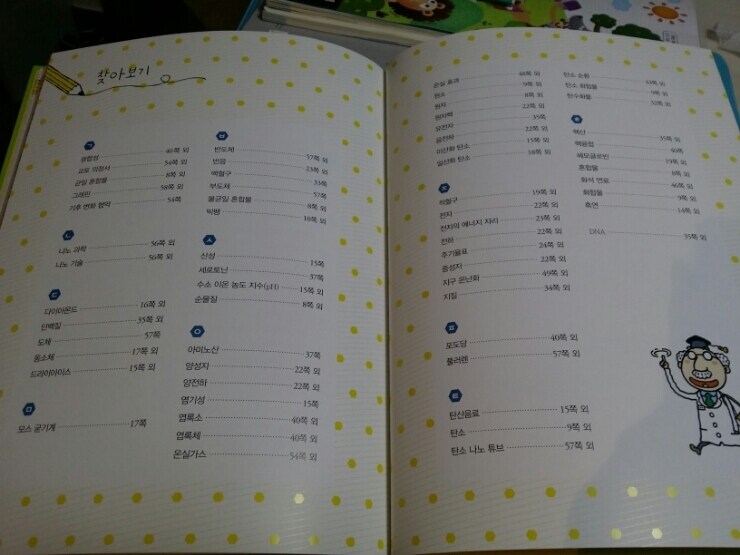 찾아보기
ㄱ
광합성 40쪽 외
교토 의정서 54쪽
균일 혼합물 8쪽 외
그래핀 58쪽 외
기후 변화 협약 54쪽
ㄴ
나노 과학 56쪽 외
나노 기술 56쪽 외
ㄷ
다이아몬드 16쪽 외
단백질 35쪽 외
도체 57쪽
동소체 17쪽 외
드라이아이스 15쪽 외
ㅁ
모스 굳기계 17쪽
ㅂ
반도체 57쪽 외
번갬 23쪽 외
백혈구 33쪽
부도체 57쪽
불균일 혼합물 8쪽 외
빅뱅 18쪽 외
ㅅ
산성 15쪽
세로토닌 37쪽
수소 이온 농도 지수(pH) 15쪽 외
순물질 8쪽 외
ㅇ
아미노산 37쪽
양성자 22쪽 외
양전하 22쪽 외
염기성 15쪽
엽록소 40쪽 외
엽록체 40쪽 외
온실가스 54쪽 외
온실 효과 48쪽 외
원소 9쪽 외
원자 8쪽 외
원자핵 22쪽 외
유전자 35쪽
음전하 22쪽 외
이산화 탄소 15쪽 외
일산화 탄소 18쪽 외
ㅈ
적혈구 19쪽 외
전자 22쪽 외
전자의 에너지 자리 23쪽 외
전하 22쪽 외
주기율표 24쪽 외
중성자 22쪽 외
지구 온난화 49쪽 외
지질 34쪽 외
ㅍ
포도당 40쪽 외
풀러렌 57쪽 외
ㅌ
탄산음료 15쪽 외
탄소 9쪽 외
탄소 나노 튜브 57쪽 외
탄소 순환 44쪽 외
탄소 화합물 9쪽 외
탄수화물 32쪽 외
ㅎ
핵산 35쪽 외
헤모글로빈 19쪽 외
혼합물 8쪽 외
화석 연료 46쪽 외
화합물 9쪽 외
흑연 14쪽 외
35쪽 외